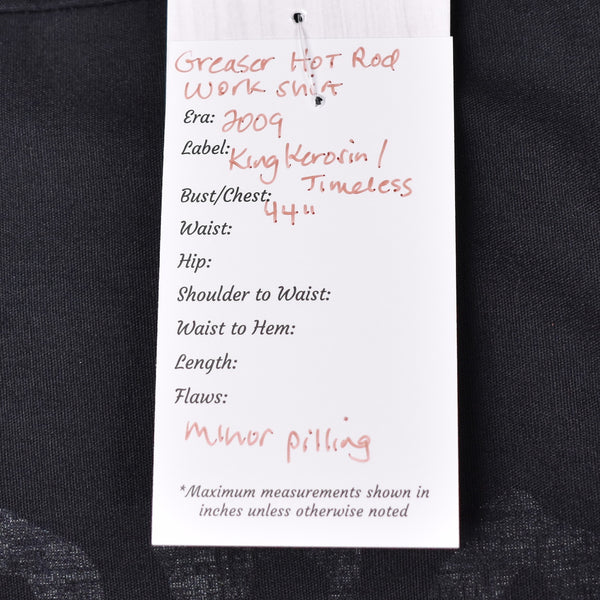 Greaser Hot Rod
Work Shirt
Era: 2009
Label: King Kerosin /
Timeless
Bust/Chest: 44"
Waist:
Hip:
Shoulder to Waist:
Waist to Hem:
Length:
Flaws:
Minor pilling
*Maximum measurements shown in
inches unless otherwise noted